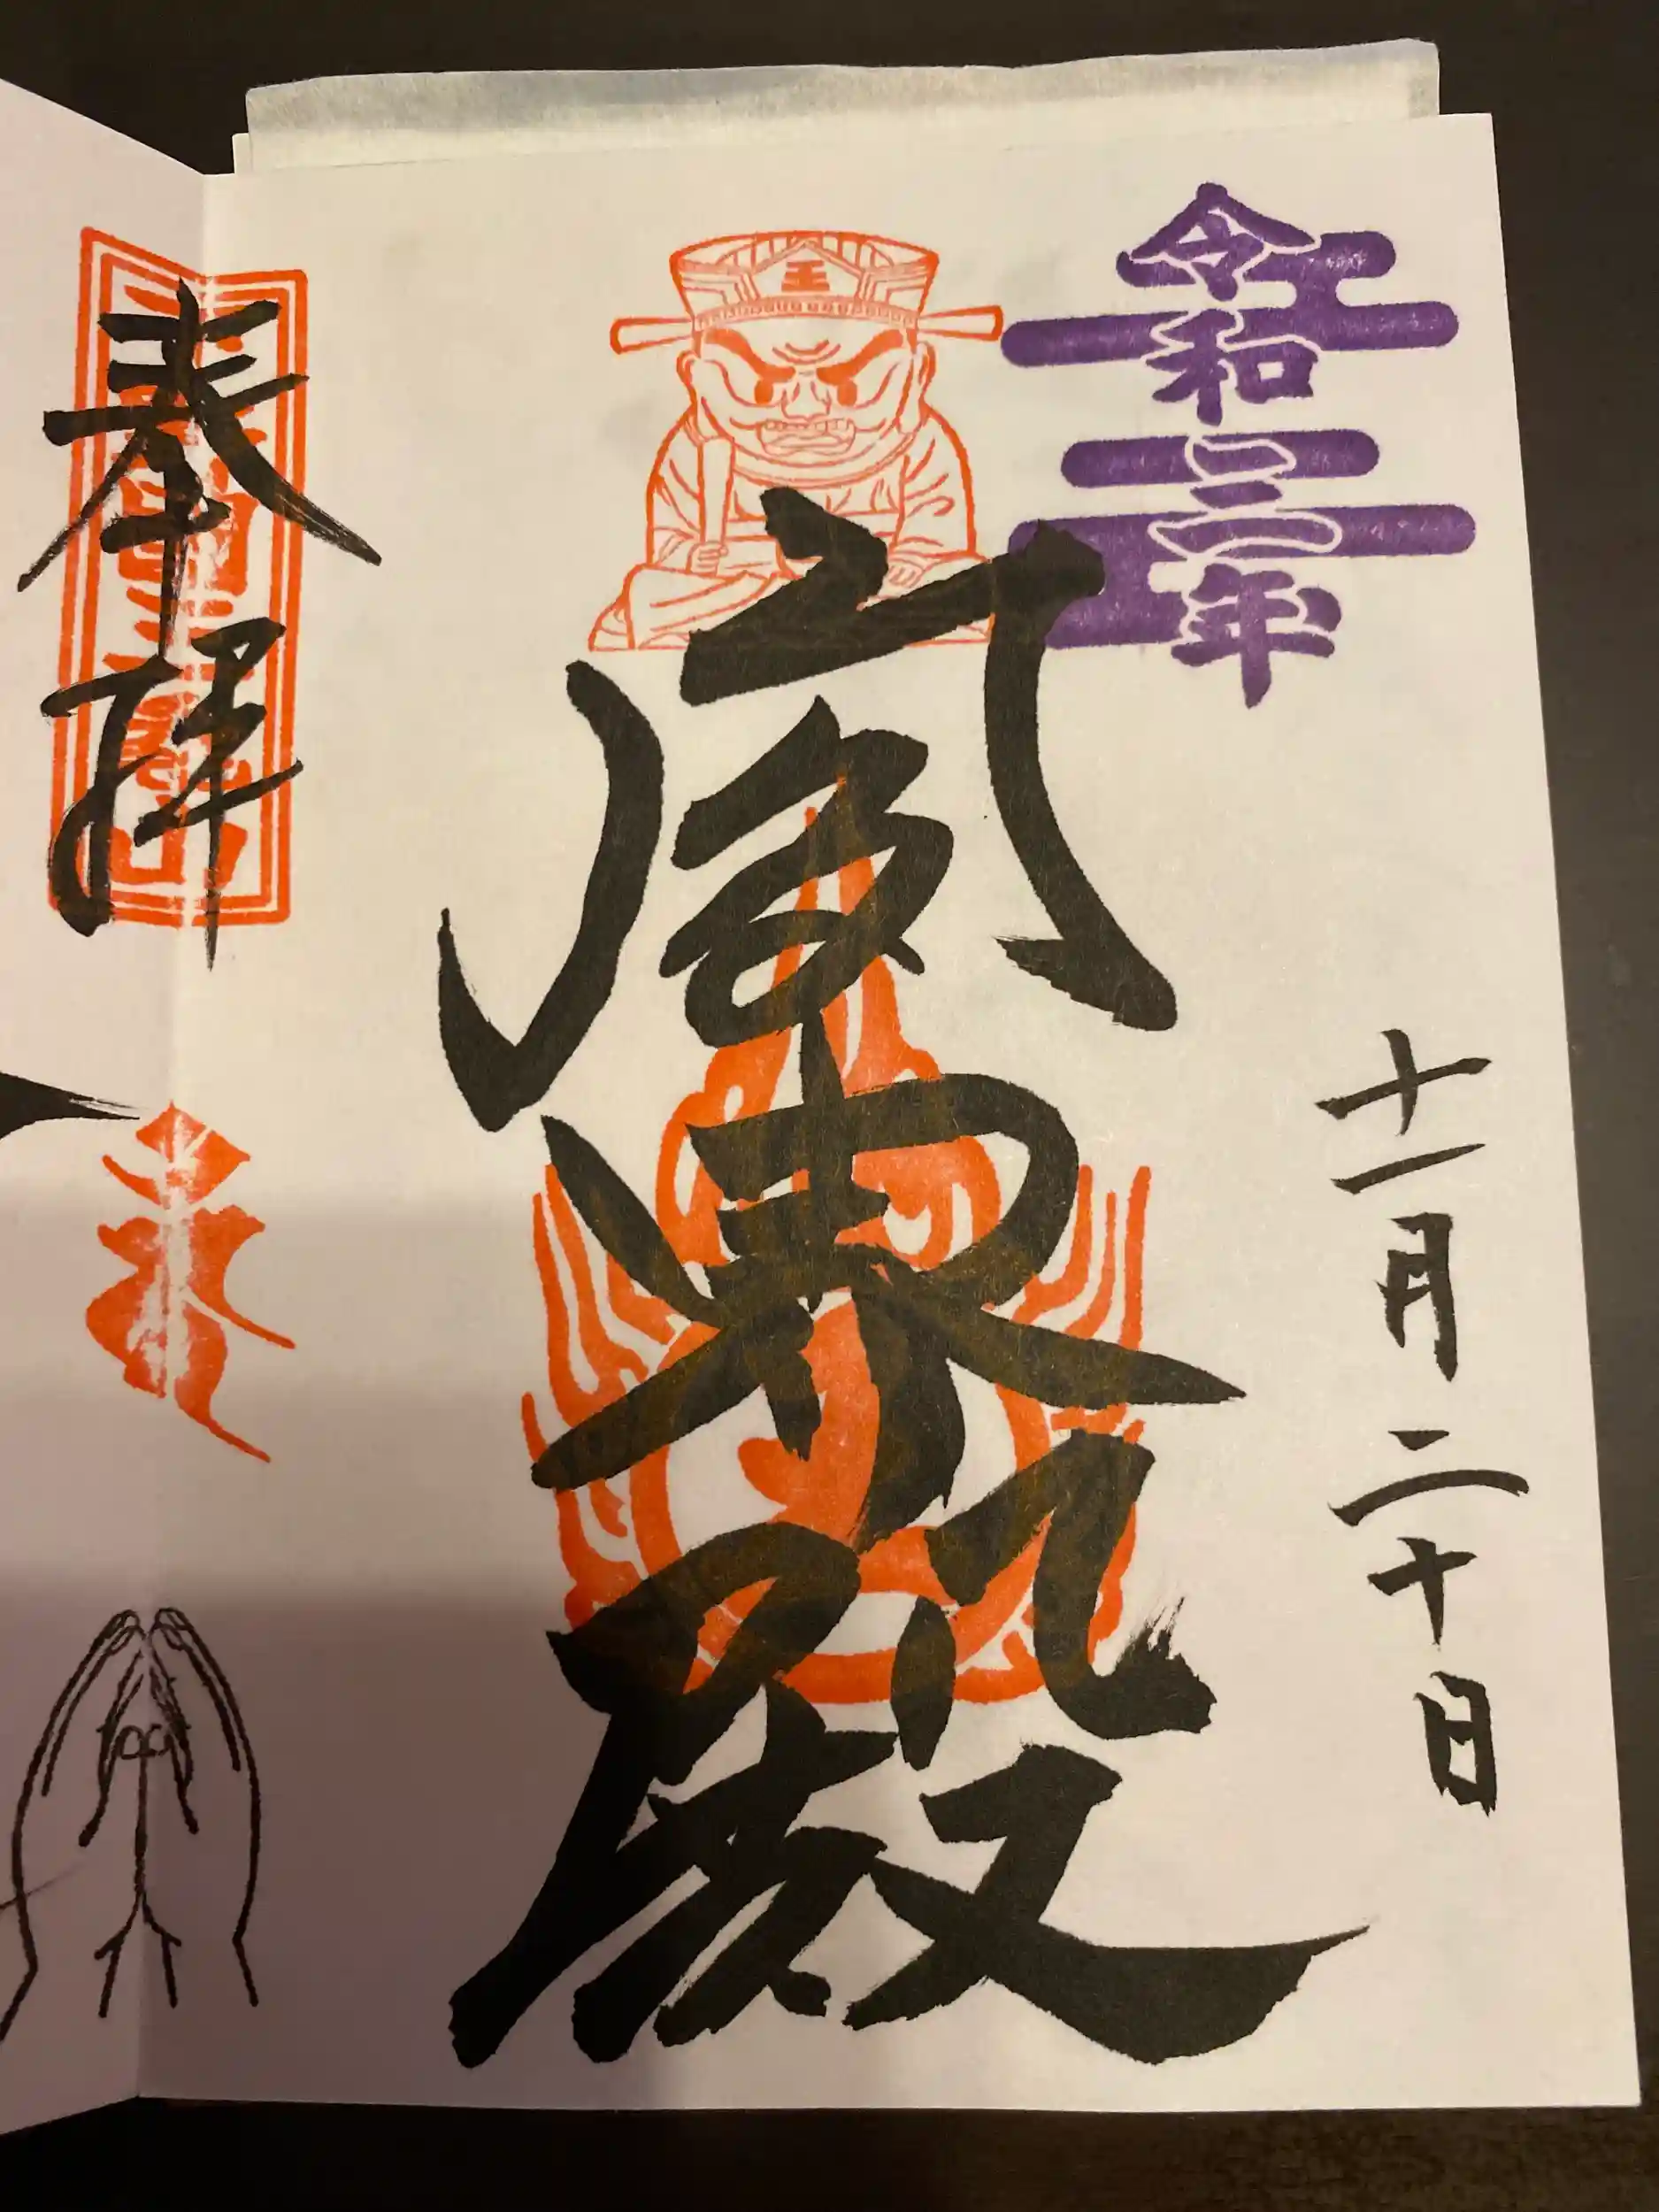 令和三年
十一月二十日
王
閻魔殿
奉拝